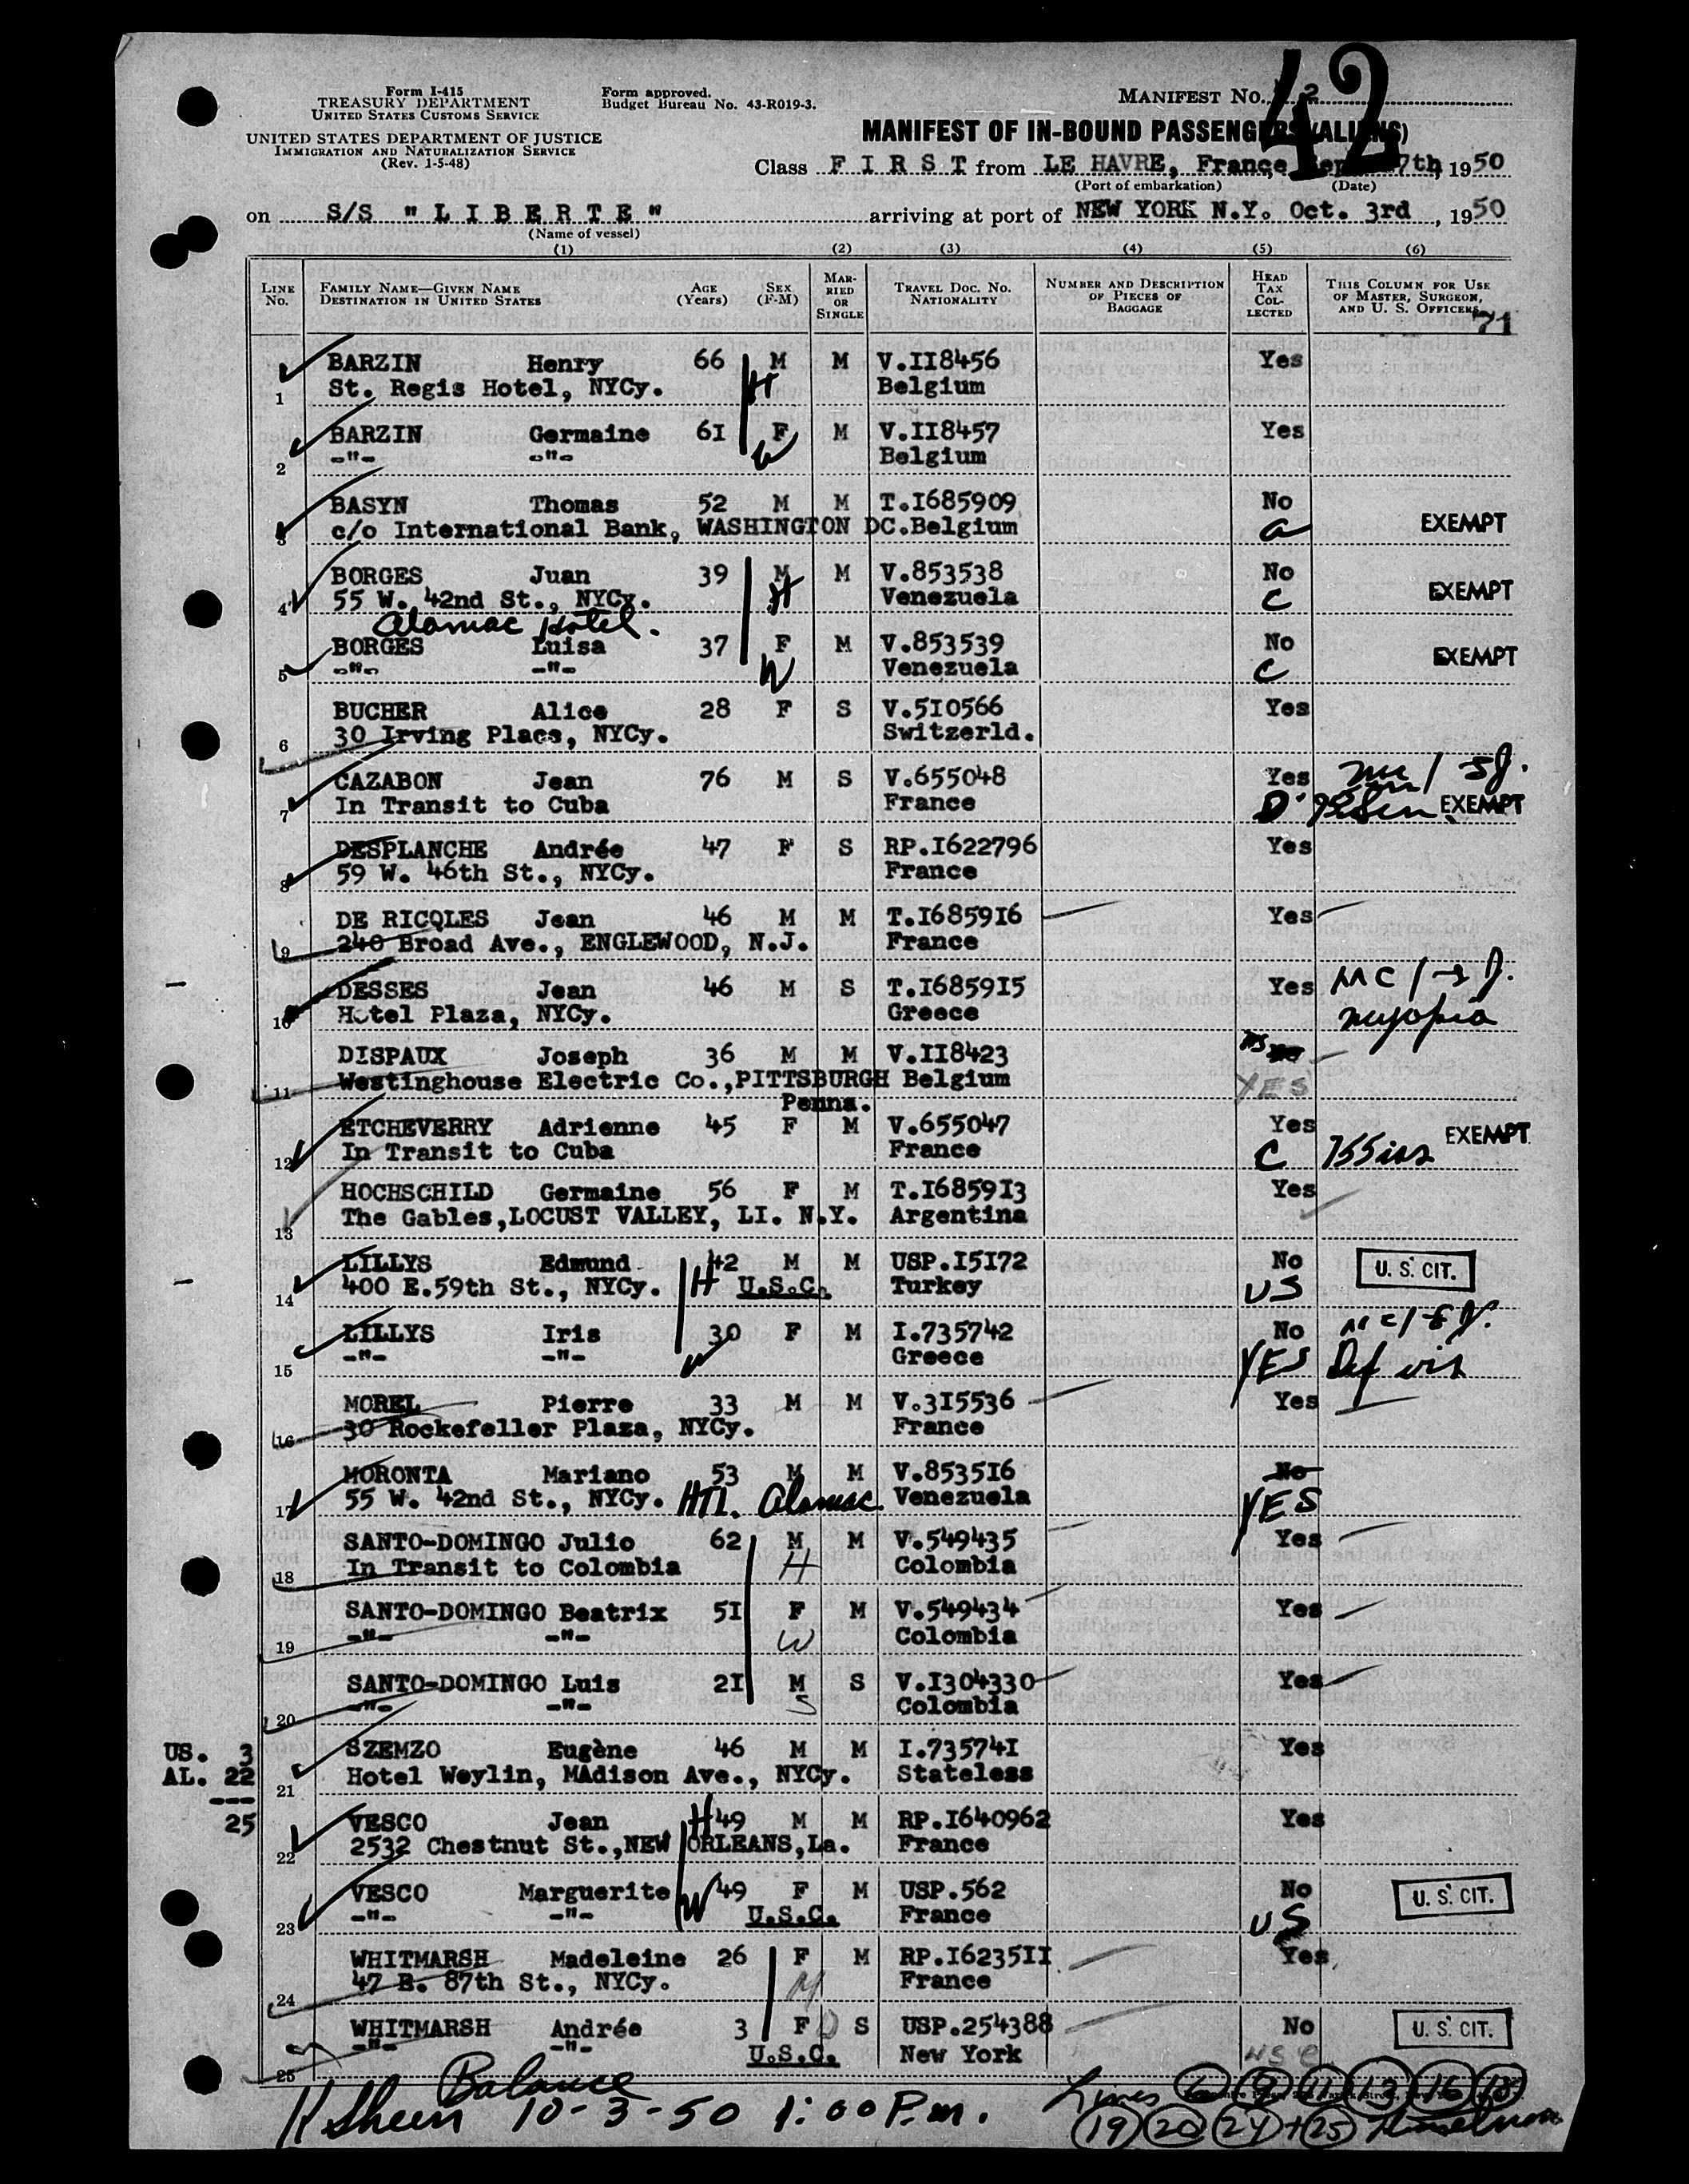 42
Form I-415
TREASURY DEPARTMENT
UNITED STATES CUSTOMS SERVICE
UNITED STATES DEPARTMENT OF JUSTICE
IMMIGRATION AND NATURALIZATION SERVICE
(Rev. 1-5-48)
Form approved.
Budget Bureau No. 43-R019-3.
MANIFEST NO. 2
MANIFEST OF IN-BOUND PASSENGERS (ALIENS)
Class F I R S T from LE HAVRE, France, 7th, 1950
(Port of embarkation) (Date)
on S/S "L I B E R T E" arriving at port of NEW YORK N.Y. Oct. 3rd, 1950
(Name of vessel)
(1) (2) (3) (4) (5) (6)
LINE No. FAMILY NAME—GIVEN NAME DESTINATION IN UNITED STATES AGE (Years) SEX (F-M) MARRIED OR SINGLE TRAVEL DOC. NO. NATIONALITY NUMBER AND DESCRIPTION OF PIECES OF BAGGAGE HEAD TAX COLLECTED THIS COLUMN FOR USE OF MASTER, SURGEON, AND U. S. OFFICERS
71
BARZIN Henry 66 M M V.II8456 Yes
1 St. Regis Hotel, NYCy. H Belgium
BARZIN Germaine 6I F M V.II8457 Yes
2 -"- -"- W Belgium
BASYN Thomas 52 M M T.I685909 No
3 c/o International Bank, WASHINGTON DC. Belgium a EXEMPT
BORGES Juan 39 M M V.853538 No
4 55 W. 42nd St., NYCy. H Venezuela C EXEMPT
Alamac Hotel.
BORGES Luisa 37 F M V.853539 No
5 -"- -"- W Venezuela C EXEMPT
BUCHER Alice 28 F S V.5I0566 Yes
6 30 Irving Place, NYCy. Switzerld.
CAZABON Jean 76 M S V.655048 Yes
7 In Transit to Cuba France D EXEMPT
DESPLANCHE Andrée 47 F S RP.I622796 Yes
8 59 W. 46th St., NYCy. France
DE RICQLES Jean 46 M M T.I6859I6 Yes
9 240 Broad Ave., ENGLEWOOD, N.J. France
DESSES Jean 46 M S T.I6859I5 Yes
10 Hotel Plaza, NYCy. Greece myopia
DISPAUX Joseph 36 M M V.II8423
11 Westinghouse Electric Co., PITTSBURGH Belgium YES
Penna.
ETCHEVERRY Adrienne 45 F M V.655047 Yes
12 In Transit to Cuba France C EXEMPT
HOCHSCHILD Germaine 56 F M T.I6859I3 Yes
13 The Gables, LOCUST VALLEY, LI. N.Y. Argentina
LILLYS Edmund 42 M M USP.I5I72 No
14 400 E.59th St., NYCy. H U.S.C. Turkey US U. S. CIT.
LILLYS Iris 30 F M I.735742 No
15 -"- -"- W Greece YES Def vis
MOREL Pierre 33 M M V.3I5536 Yes
16 30 Rockefeller Plaza, NYCy. France
MORONTA Mariano 53 M M V.8535I6 No
17 55 W. 42nd St., NYCy. Htl. Alamac Venezuela YES
SANTO-DOMINGO Julio 62 M M V.549435 Yes
18 In Transit to Colombia H Colombia
SANTO-DOMINGO Beatrix 5I F M V.549434 Yes
19 -"- -"- W Colombia
SANTO-DOMINGO Luis 2I M S V.I304330 Yes
20 -"- -"- S Colombia
SZEMZO Eugène 46 M M I.73574I Yes
21 Hotel Weylin, MAdison Ave., NYCy. Stateless
US. 3
AL. 22
---
25
VESCO Jean H 49 M M RP.I640962 Yes
22 2532 Chestnut St., NEW ORLEANS, La. France
VESCO Marguerite W 49 F M USP.562 No
23 -"- -"- U.S.C. France US U. S. CIT.
WHITMARSH Madeleine 26 F M RP.I6235II Yes
24 47 E. 87th St., NYCy. M France
WHITMARSH Andrée 3 F D S USP.254388 No
25 -"- -"- U.S.C. New York USC U. S. CIT.
Balance
K Sheen 10-3-50 1:00 P.m.
Lines 6 9 11 13 16 18
19 20 24 + 25